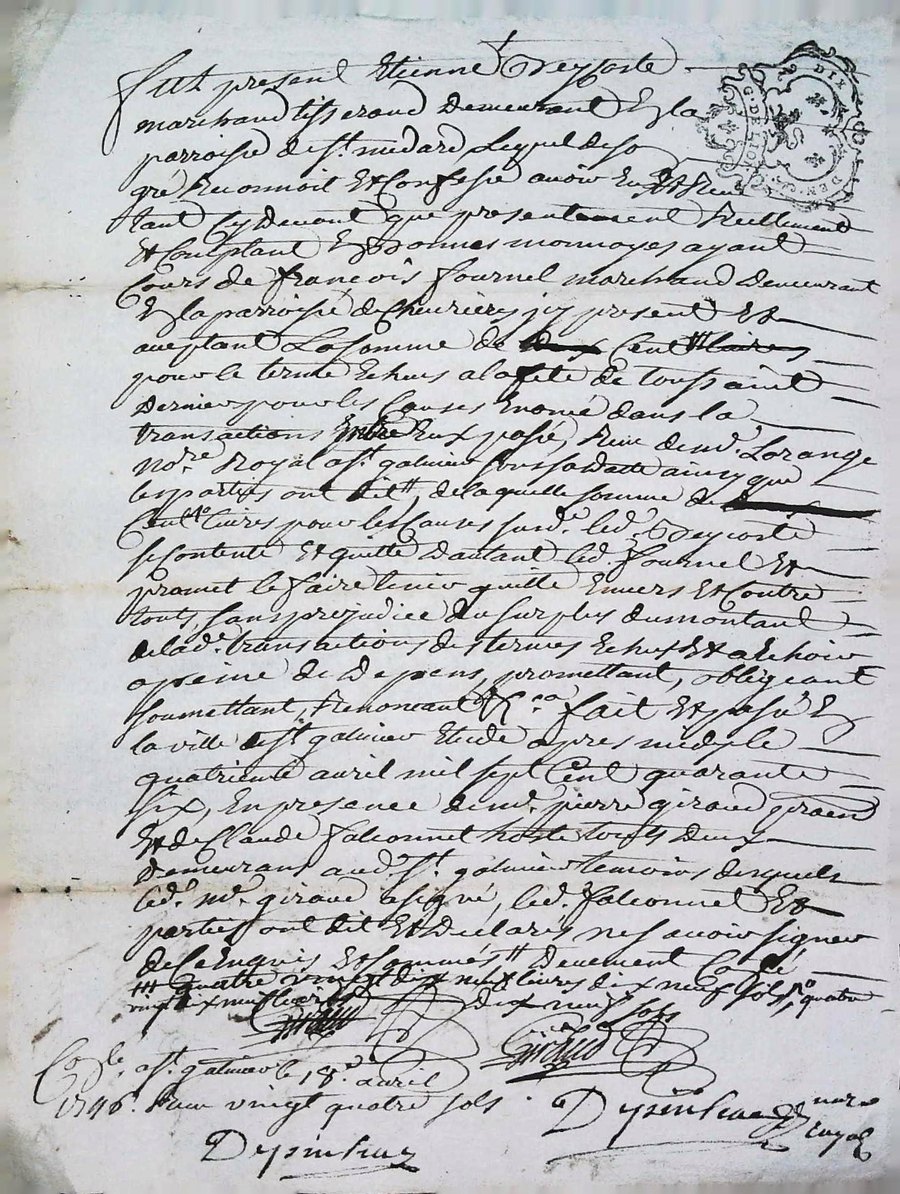 Fut present Etienne Peycoste
marchand tisserand demeurant En la
parroisse de st. medard Lequel de so
gré Reconnoit Et Confesse avoir Eu Et Receu
tant Cy devant que presentement Reellement
Et Comptant En Bonnes monnoyes ayant
Cours de françois fournel marchand demeurant
En la parroisse de Chevrieres jcy present Et
aceptant La somme de Cent livres
pour le terme Echus a la fete de toussaint
dernier pour les Causes Enoncé dans la
transactions Entre Eux passé, Receu de md. Lorange
nore. Royal a st. galmier sous sa datte ainsy que
les parties ont dit, de laquelle somme de
Cent livres pour les Causes susd. led. Peycoste
se Contente Et quitte d'autant led. fournel Et
promet le faire tenir quitte Envers Et Contre
touts, sans prejudice du surplus du montant
de lad. transactions des termes Echus Et a Echoir
a peine de depens, promettant, obligeant
soumettant, Renoncant &ca. fait Et passé En
la ville de st. galmier Etude apres midy le
quatrieme avril mil sept Cent quarante
six, En presance de me. pierre giraud
Et de Claude falconnet hoste touts deux
demeurans aud. st. galmier temoins desquels
led. me. giraud a signé, led. falconnet Et
parties ont dit Et declarés ne savoir signer
de Ce Enquis Et sommés
quatre vingt dix neuf livres dix neuf sols, quatre
vingt dix neuf livres dix neuf sols
Giraud
Giraud
Conle. a st. galmier le 18e. avril
1746. Receu vingt quatre sols.
Depinhac nore Royal
Depinhac
G. DE LION
DIX DEN.